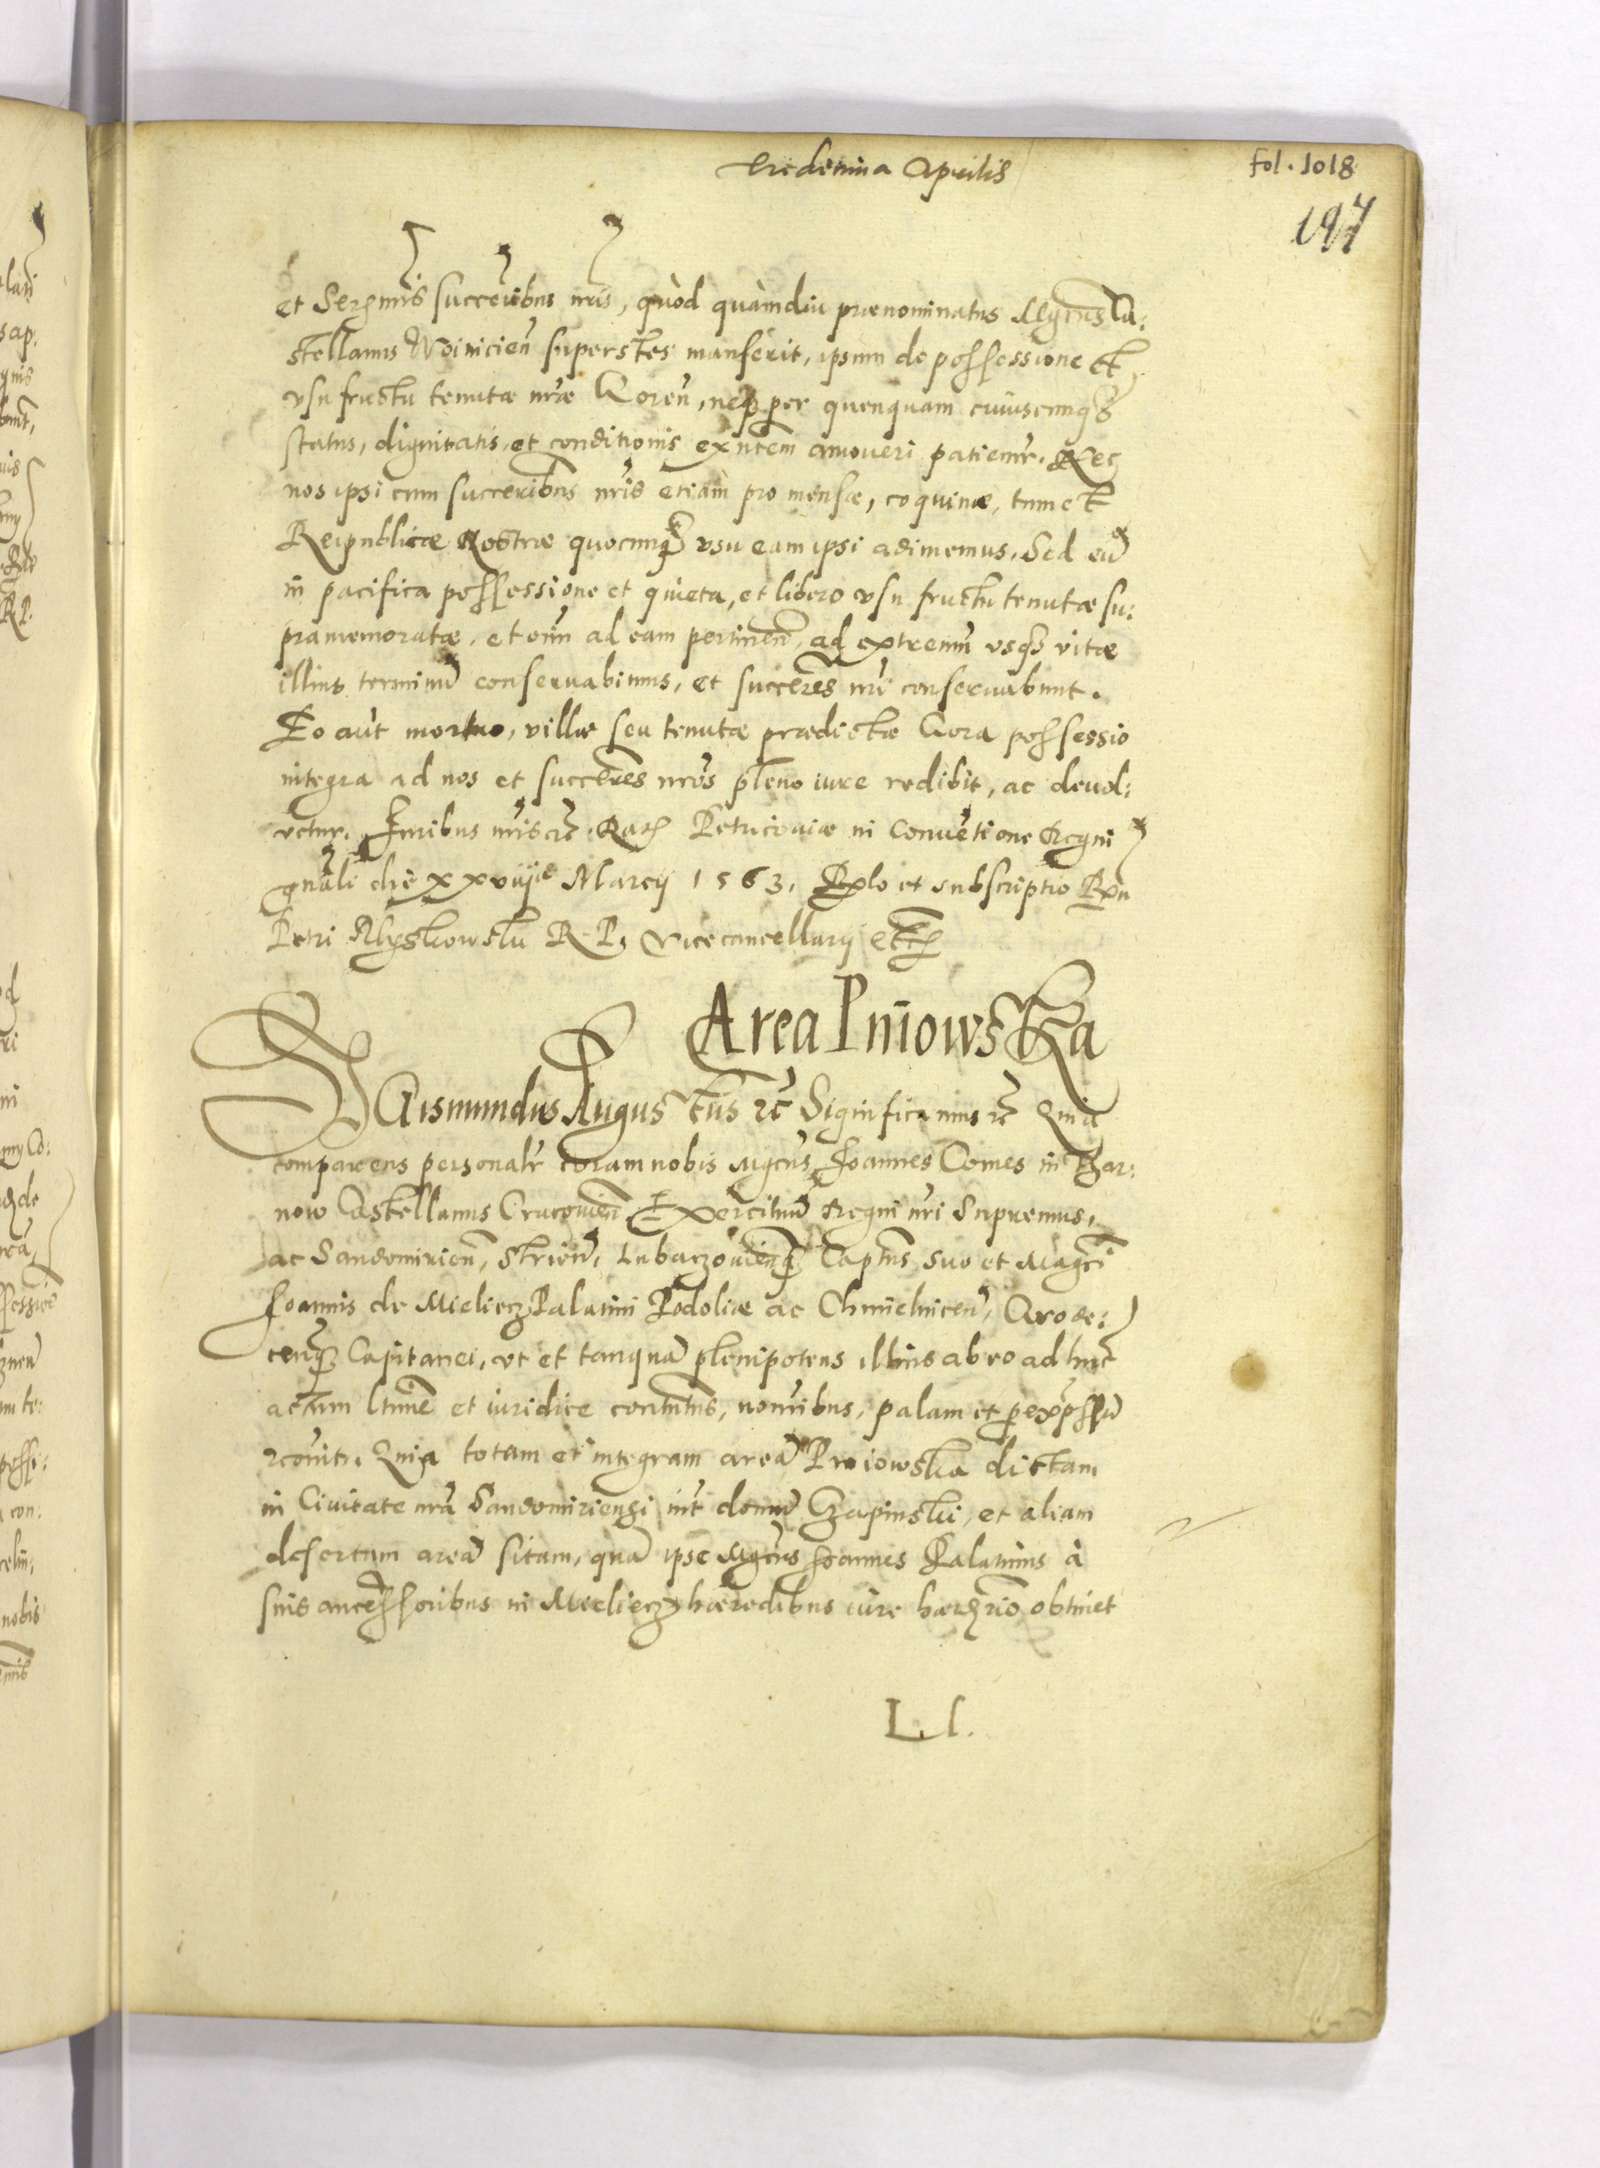 Tredecima Aprilis
fol. 1018
197
et Ser̃mis succeribus nr̃is, quòd quàmdiu prænominatus Mgcus Ca:
stellanus Woinicieñ superstes manserit, ipsum de possessione et
vsu fructu tenutæ nr̃æ Goreñ, neq3 per quenquam cuiuscunq3
status, dignitatis, et conditionis exñtem amoueri patiemur. Nec
nos ipsi cum succeribus nr̃is etiam pro mensæ, coquinæ, tum et
Reipublicæ Nostræ quocunq3 vsu eam ipsi adimemus. Sed eũ
in pacifica possessione et quieta, et libero vsu fructu tenutæ su:
pramemoratæ, et oĩm ad eam pertineñ, ad extremũ vsq3 vitæ
illius terminũ conseruabimus, et succeres nr̃i conseruabunt.
Eo aut̃ mortuo, villæ seu tenutæ prædictæ Gora possessio
integra ad nos et succeres nr̃os pleno iure redibit, ac deuol:
uetur. Iuribus nr̃is etc̃. Datȝ Petricouiæ in Conuẽtione Regni
gnãli die xxviije Marcij 1563. Rẽlo et subscriptio Rẽn
Petri Myskowskij R. P. Vicecancellarij etcȝ
Area Pniowska
SGismundus Augustus etc̃ Significamus etc̃ Quia
comparens personalr̃ coram nobis Mgcus Joannes Comes in Thar:
now Castellanus Cracouieñ Exercituũ Regni nr̃i Supremus,
ac Sandomirieñ, Strieñ, Lubaczowieñq3 Captñs suo et Magci
Joannis de Mielecz Palatini Podoliæ ac Chmielniceñ, Grode:
ceñq3 Capitanei, vt et tanquã plenipotens illius ab eo ad hunc
actum ltime et iuridice constituts, noĩibus, palam et p expssũ
rcouit. Quia totam et integram areã Pniowska dictam
in Ciuitate nr̃a Sandomiriensi int̃ domũ Czapinski, et aliam
desertam areã sitam, quã ipse Mgcus Joannes Palatinus à
suis ancessoribus in Mielecz hæredibus iure hærȝrio obtinet
L l.